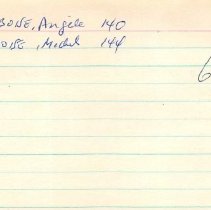 BONE, Angele 140
BONE, Michel 144
6